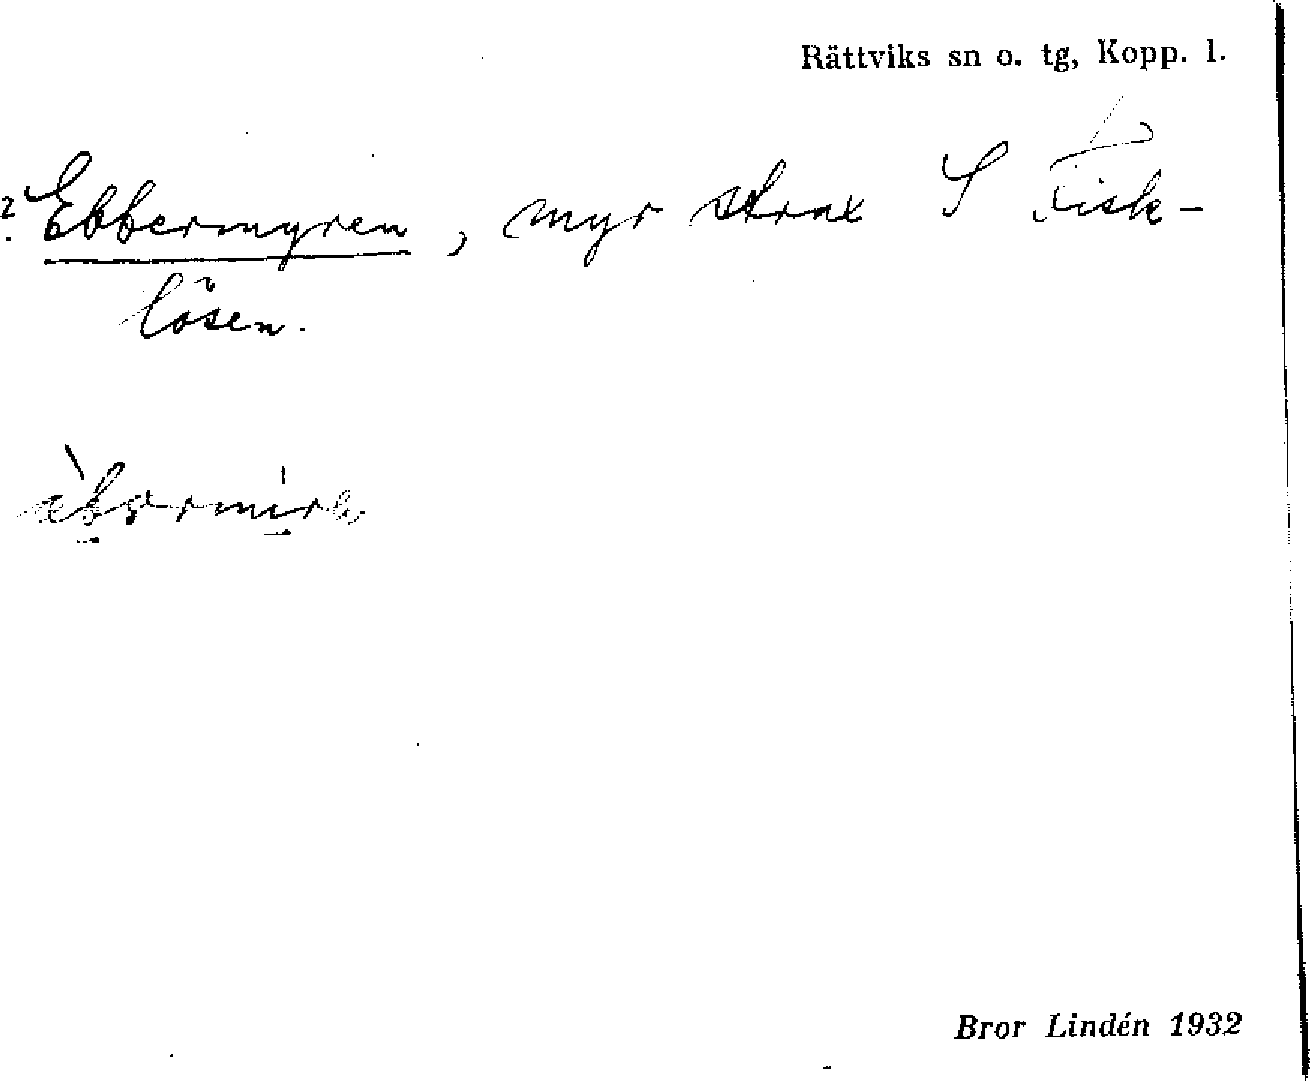 Rättviks sn o. tg, Kopp. l.
? Ebbermyren, myr strax S Fisk-
lösen.
Bror Lindén 1932